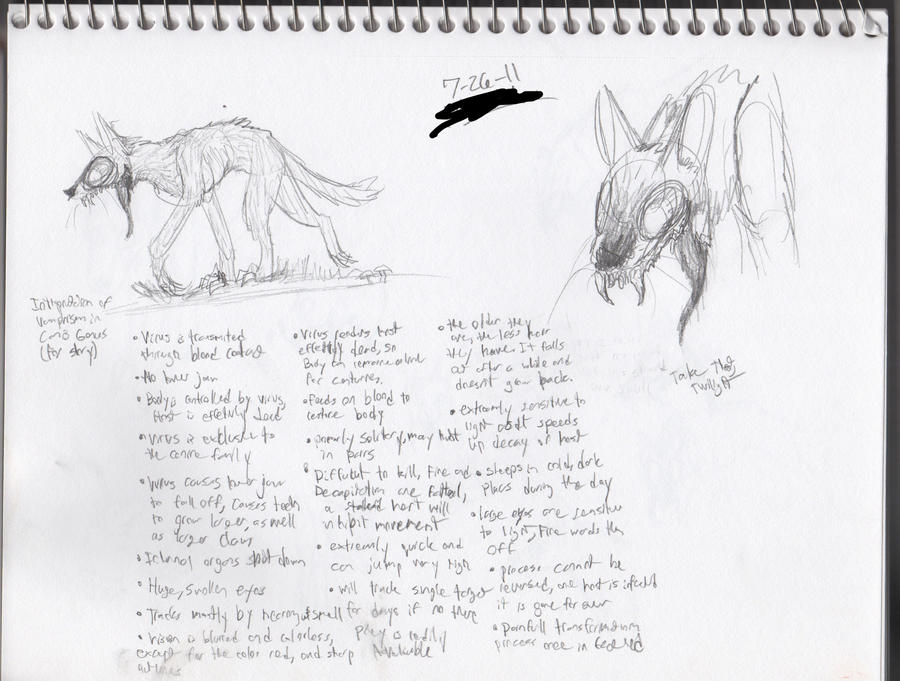 7-26-11
Vampirism in
Canis Genus
(for story)
• Virus is transmitted
through blood contact
• No lower jaw
• Body is controlled by virus,
Host is effetivly dead
• Virus is exclusive to
the canine family
• Virus causes lower jaw
to fall off, causes teeth
to grow larger, as well
as larger claws
• Internal organs shut down
• Huge, swollen eyes
• Tracks mostly by hearing & smell
• Vision is blurred and colorless,
except for the color red, and sharp
outlines
• Virus renders host
dead, so
Body can remain
for centuries.
• feeds on blood to
body
• solitary, may hunt
in pairs
• Difficult to kill, Fire and
Decapitation are
a heart will
inhibit movement
• extremly quick and
can jump very high
• will track single target
for days if no other
prey is readily
Available
• the older they
are, the less hair
they have. It falls
out after a while and
doesn't grow back.
• extremly sensitive to
light speeds
up decay of host
• sleeps in cold, dark
places during the day
• large eyes are sensitive
to light, Fire wards them
off
• process cannot be
reversed, once host is infected
it is gone for ever
• Painfull transformation
process
Take That
Twilight